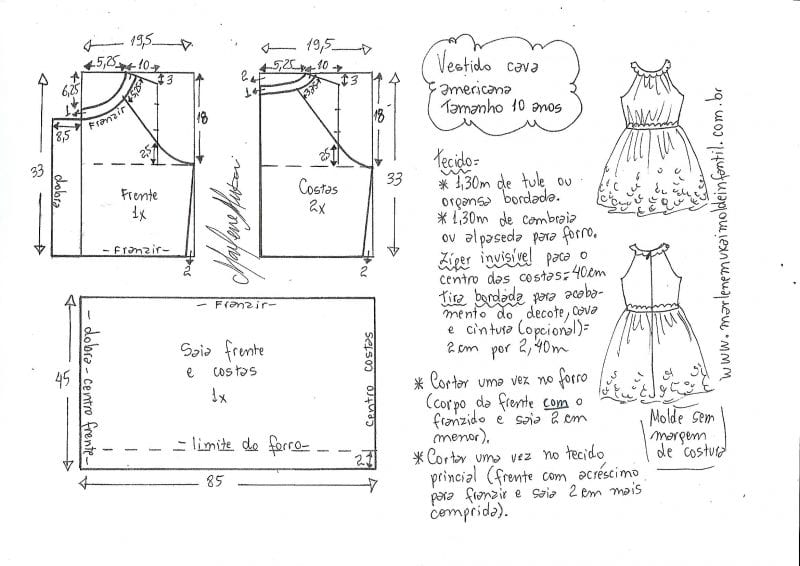 19,5
5,25 10
3
6,25
1
Franzir
3,25
18
8,5
33
2,5
dobra
Frente
1x
- Franzir -
2
19,5
5,25 10
2
1
3
3,25
18
2,5
33
Costas
2x
2
Marlene Mukai
Vestido cava
americana
Tamanho 10 anos
Tecido=
* 1,30m de tule ou
organsa bordada.
* 1,30m de cambraia
ou alpaseda para forro.
Zíper invisível para o
centro das costas=40cm
Tira bordada para acaba-
mento do decote, cava
e cintura (opcional)=
2cm por 2,40m
* Cortar uma vez no forro
(corpo da frente com o
franzido e saia 2cm
menor).
* Cortar uma vez no tecido
princial (frente com acréscimo
para franzir e saia 2cm mais
comprida).
- Franzir -
45
- dobra - centro frente -
Saia frente
e costas
1x
centro costas
= limite do forro -
2
85
www.marlenemukaimoldeinfantil.com.br
Molde sem
margem
de costura